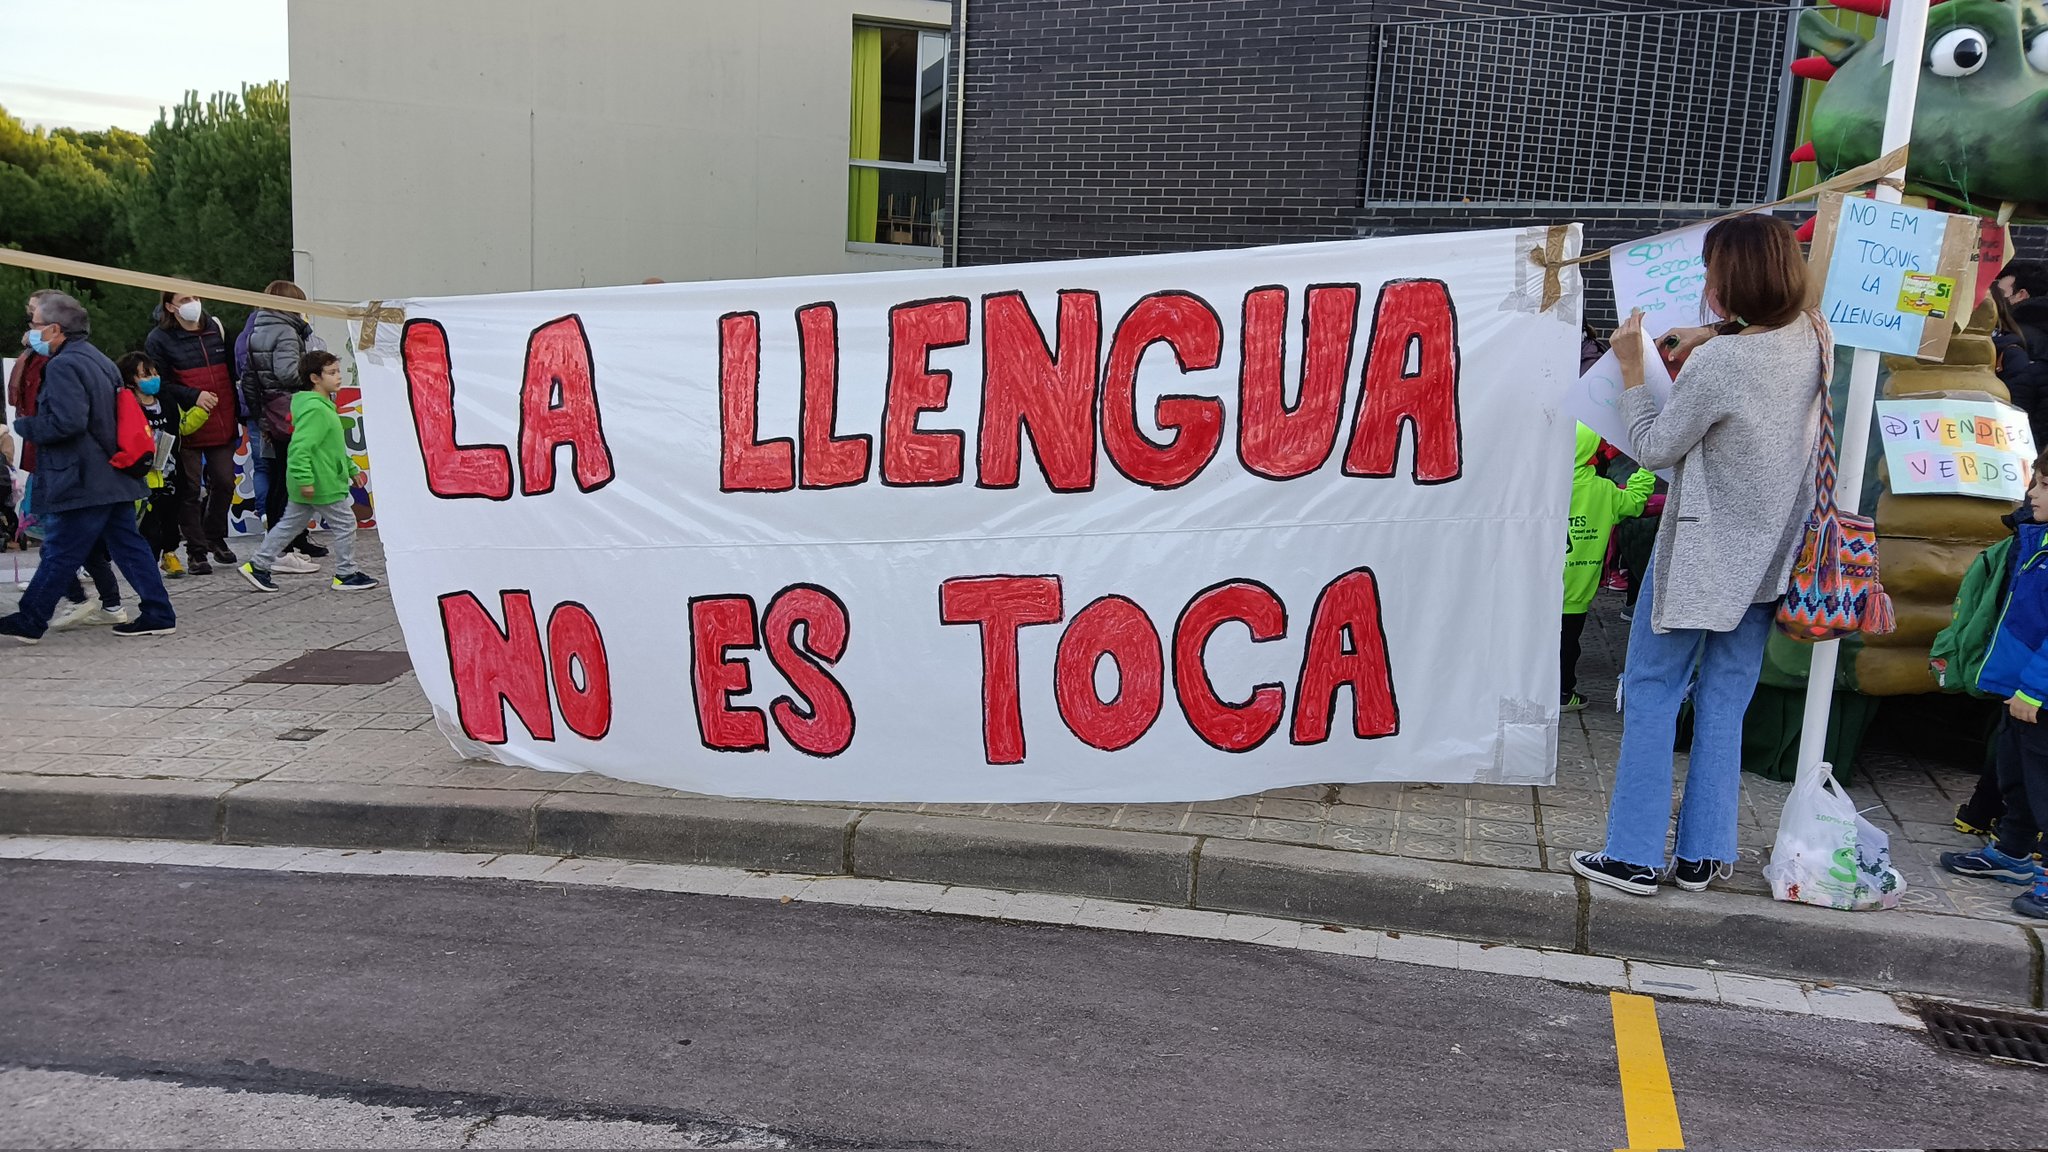 LA LLENGUA
NO ES TOCA
SOM
NO EM
TOQUIS
LA
LLENGUA
Sí
DIVENDRES
VERDS!
TES